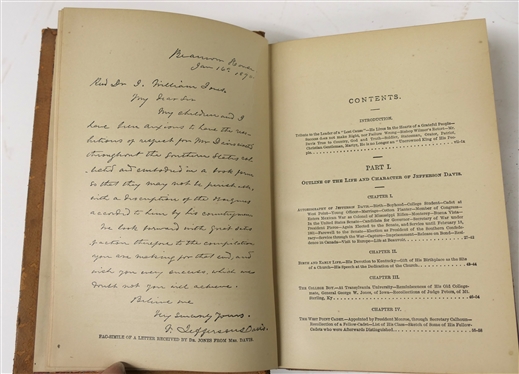 Beauvoir House
Jan 16th 1890
Rev Dr J. William Jones
My dear Sir
My children and I
have been anxious to have the res-
olutions of respect for Mr Davis sent
throughout the Southern States col-
lected and embodied in a book form
so that they may not be perished,
with a description of the
accorded to him by his countrymen
We look forward with great satis-
faction therefore to the compilation
you are making for that end, and
wish you every success, which we
doubt not you will achieve.
Believe me
Very Sincerely Yours,
V. Jefferson Davis.
FAC-SIMILE OF A LETTER RECEIVED BY DR. JONES FROM MRS. DAVIS.
CONTENTS.
INTRODUCTION.
Tribute to the Leader of a "Lost Cause"—He Lives in the Hearts of a Grateful People—
Success does not Make Right, nor Failure Wrong—Bishop Wilmer's Report—Mr.
Davis True to Country, God and Truth—Soldier, Statesman, Orator, Patriot,
Christian Gentleman, Martyr, He is no longer an "Uncrowned King of His Peo-
ple
PART I.
OUTLINE OF THE LIFE AND CHARACTER OF JEFFERSON DAVIS.
CHAPTER I.
AUTOBIOGRAPHY OF JEFFERSON DAVIS—Birth—Boyhood—College Student—Cadet at
West Point—Young Officer—Marriage—Cotton Planter—Member of Congress—
Enters Mexican War as Colonel of Mississippi Rifles—Monterey—Buena Vista—
In the United States Senate—Candidate for Governor—Secretary of War under
President Pierce—Again Elected to the Senate, and Service until February 10,
1861—Farewell to the Senate—Election as President of the Southern Confed-
eracy—Service through the War—Capture—Imprisonment—Release on Bond—Resi-
dence in Canada—Visit to Europe—Life at Beauvoir
CHAPTER II.
BIRTH AND EARLY LIFE—His Devotion to Kentucky—Gift of His Birthplace as the Site
of a Church—His Speech at the Dedication of the Church
CHAPTER III.
THE COLLEGE BOY—At Transylvania University—Reminiscences of His Old College-
mate, General George W. Jones, of Iowa—Recollections of Judge Peters, of Mt.
Sterling, Ky
CHAPTER IV.
THE WEST POINT CADET—Appointed by President Monroe, through Secretary Calhoun—
Recollection of a Fellow-Cadet—List of His Class—Sketch of Some of His Fellow-
Cadets who were Afterwards Distinguished